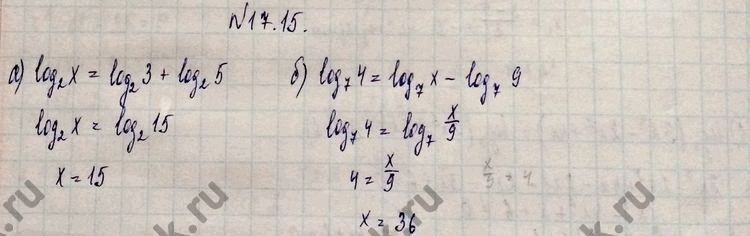 №17.15.
а) log₂x = log₂3 + log₂5
log₂x = log₂15
x = 15
б) log₇4 = log₇x − log₇9
log₇4 = log₇ x/9
4 = x/9
x/9 = 4
x = 36
k.ru
k.ru
k.ru